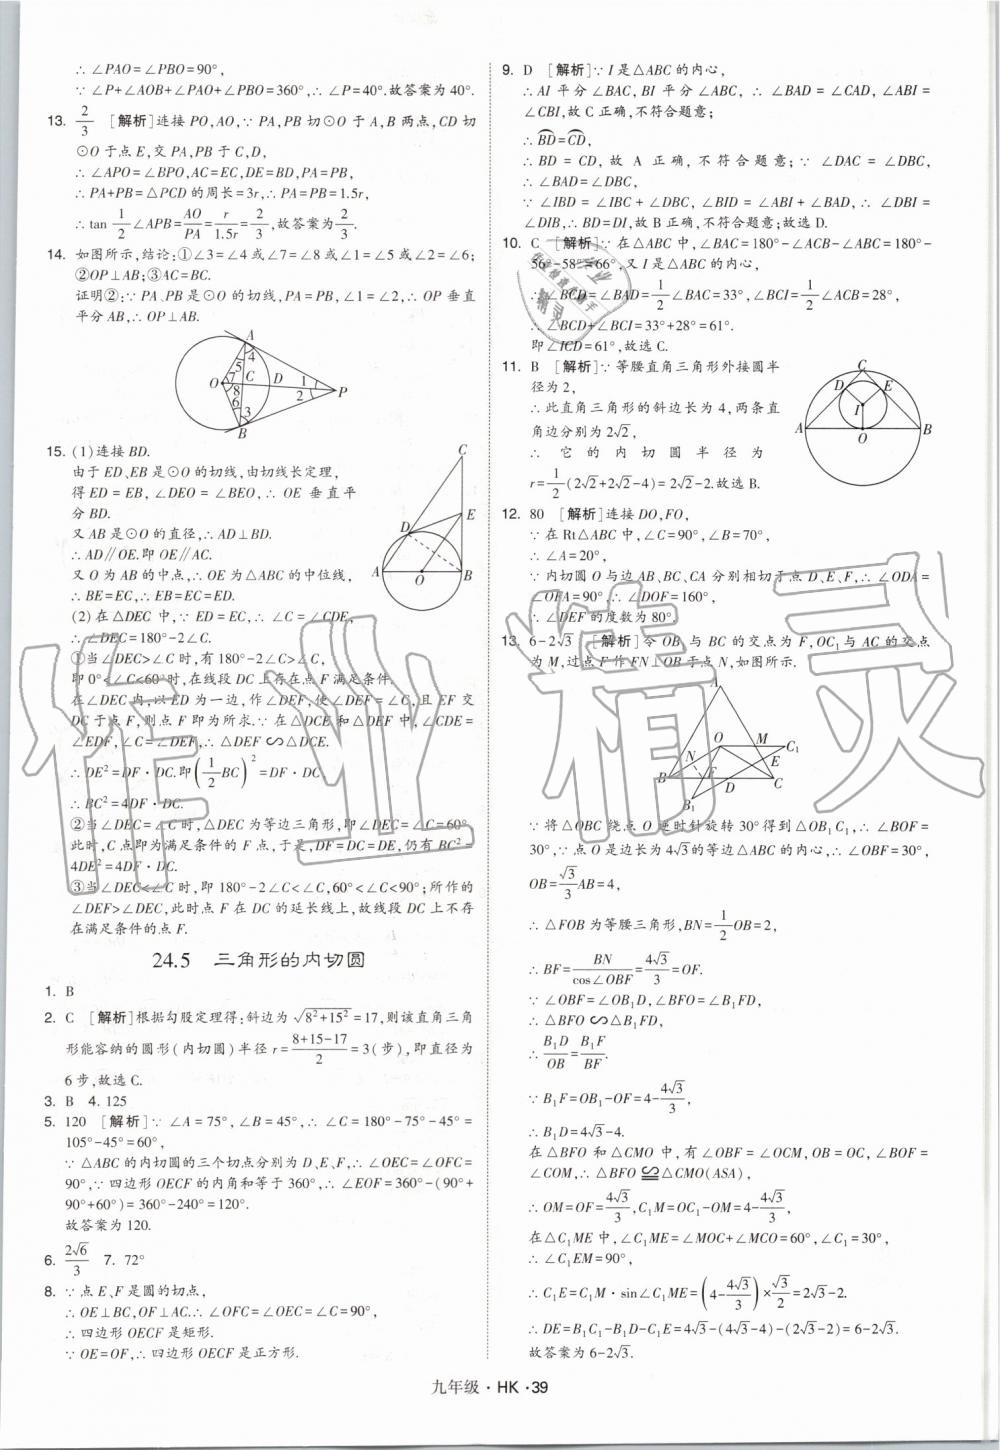 ∴ ∠PAO=∠PBO=90°,
∵ ∠P+∠AOB+∠PAO+∠PBO=360°,∴ ∠P=40°.故答案为 40°.
13. 2/3 [解析]连接 PO,AO,∵ PA,PB 切⊙O 于 A,B 两点,CD 切
⊙O 于点 E,交 PA,PB 于 C,D,
∴ ∠APO=∠BPO,AC=EC,DE=BD,PA=PB,
∴ PA+PB=△PCD 的周长=3r,∴ PA=PB=1.5r,
∴ tan 1/2∠APB=AO/PA=r/1.5r=2/3,故答案为2/3.
14. 如图所示,结论:①∠3=∠4 或∠7=∠8 或∠1=∠5 或∠2=∠6;
②OP⊥AB;③AC=BC.
证明②:∵ PA、PB 是⊙O 的切线,PA=PB,∠1=∠2,∴ OP 垂直
平分 AB,∴ OP⊥AB.
A
5 4
O 7 C D 1
8 2 P
6 3
B
15. (1)连接 BD.
由于 ED、EB 是⊙O 的切线,由切线长定理,
得 ED=EB,∠DEO=∠BEO,∴ OE 垂直平
分 BD.
又 AB 是⊙O 的直径,∴ AD⊥BD.
∴ AD∥OE.即 OE∥AC.
又 O 为 AB 的中点,∴ OE 为△ABC 的中位线,
∴ BE=EC,∴ EB=EC=ED.
C
D E
A O B
(2)在△DEC 中,∵ ED=EC,∴ ∠C=∠CDE,
∴ ∠DEC=180°-2∠C.
①当∠DEC>∠C 时,有 180°-2∠C>∠C,
即 0°<∠C<60°时,在线段 DC 上存在点 F 满足条件.
在∠DEC 内,以 ED 为一边,作∠DEF,使∠DEF=∠C,且 EF 交
DC 于点 F,则点 F 即为所求.∵ 在△DCE 和△DEF 中,∠CDE=
∠EDF,∠C=∠DEF,∴ △DEF∽△DCE.
∴ DE²=DF·DC.即(1/2 BC)²=DF·DC
∴ BC²=4DF·DC.
②当∠DEC=∠C 时,△DEC 为等边三角形,即∠DEC=∠C=60°,
此时,C 点即为满足条件的 F 点,于是,DF=DC=DE,仍有 BC²=
4DE²=4DF·DC.
③当∠DEC<∠C 时,即 180°-2∠C<∠C,60°<∠C<90°;所作的
∠DEF>∠DEC,此时点 F 在 DC 的延长线上,故线段 DC 上不存
在满足条件的点 F.
24.5 三角形的内切圆
1. B
2. C [解析]根据勾股定理得:斜边为 √(8²+15²)=17,则该直角三角
形能容纳的圆形(内切圆)半径 r=(8+15-17)/2=3(步),即直径为
6 步,故选 C.
3. B 4. 125
5. 120 [解析]∵ ∠A=75°,∠B=45°,∴ ∠C=180°-75°-45°=
105°-45°=60°,
∵ △ABC 的内切圆的三个切点分别为 D、E、F,∴ ∠OEC=∠OFC=
90°,∵ 四边形 OECF 的内角和等于 360°,∴ ∠EOF=360°-(90°+
90°+60°)=360°-240°=120°.
故答案为 120.
6. 2√6/3 7. 72°
8. ∵ 点 E、F 是圆的切点,
∴ OE⊥BC,OF⊥AC.∴ ∠OFC=∠OEC=∠C=90°,
∴ 四边形 OECF 是矩形.
∵ OE=OF,∴ 四边形 OECF 是正方形.
9. D [解析]∵ I 是△ABC 的内心,
∴ AI 平分∠BAC,BI 平分∠ABC,∴ ∠BAD=∠CAD,∠ABI=
∠CBI,故 C 正确,不符合题意;
∴ BD=CD,
∴ BD=CD,故 A 正确,不符合题意;∵ ∠DAC=∠DBC,
∴ ∠BAD=∠DBC,
∵ ∠IBD=∠IBC+∠DBC,∠BID=∠ABI+∠BAD,∴ ∠DBI=
∠DIB,∴ BD=DI,故 B 正确,不符合题意;故选 D.
10. C [解析]∵ 在△ABC 中,∠BAC=180°-∠ACB-∠ABC=180°-
56°-58°=66°,又 I 是△ABC 的内心,
∴ ∠BCD=∠BAD=1/2∠BAC=33°,∠BCI=1/2∠ACB=28°,
∴ ∠BCD+∠BCI=33°+28°=61°.
即∠ICD=61°,故选 C.
11. B [解析]∵ 等腰直角三角形外接圆半
径为 2,
∴ 此直角三角形的斜边长为 4,两条直
角边分别为 2√2,
∴ 它的内切圆半径为
r=1/2(2√2+2√2-4)=2√2-2.故选 B.
C
D E
I
A O B
12. 80 [解析]连接 DO,FO,
∵ 在 Rt△ABC 中,∠C=90°,∠B=70°,
∴ ∠A=20°,
∵ 内切圆 O 与边 AB、BC、CA 分别相切于点 D、E、F,∴ ∠ODA=
∠OFA=90°,∴ ∠DOF=160°,
∴ ∠DEF 的度数为 80°.
13. 6-2√3 [解析]令 OB₁ 与 BC 的交点为 F,OC₁ 与 AC 的交点
为 M,过点 F 作 FN⊥OB 于点 N,如图所示.
A
O M C₁
N E
B F D C
B₁
∵ 将△OBC 绕点 O 逆时针旋转 30°得到△OB₁C₁,∴ ∠BOF=
30°,∵ 点 O 是边长为 4√3的等边△ABC 的内心,∴ ∠OBF=30°,
OB=√3/3 AB=4,
∴ △FOB 为等腰三角形,BN=1/2 OB=2,
∴ BF=BN/cos∠OBF=4√3/3=OF.
∵ ∠OBF=∠OB₁D,∠BFO=∠B₁FD,
∴ △BFO∽△B₁FD,
∴ B₁D/OB=B₁F/BF.
∵ B₁F=OB₁-OF=4-4√3/3,
∴ B₁D=4√3-4.
在△BFO 和△CMO 中,有∠OBF=∠OCM,OB=OC,∠BOF=
∠COM,∴ △BFO≌△CMO(ASA),
∴ OM=OF=4√3/3,C₁M=OC₁-OM=4-4√3/3,
在△C₁ME 中,∠C₁ME=∠MOC+∠MCO=60°,∠C₁=30°,
∴ ∠C₁EM=90°,
∴ C₁E=C₁M·sin∠C₁ME=(4-4√3/3)×√3/2=2√3-2.
∴ DE=B₁C₁-B₁D-C₁E=4√3-(4√3-4)-(2√3-2)=6-2√3.
故答案为 6-2√3.
九年级·HK·39
作业精灵